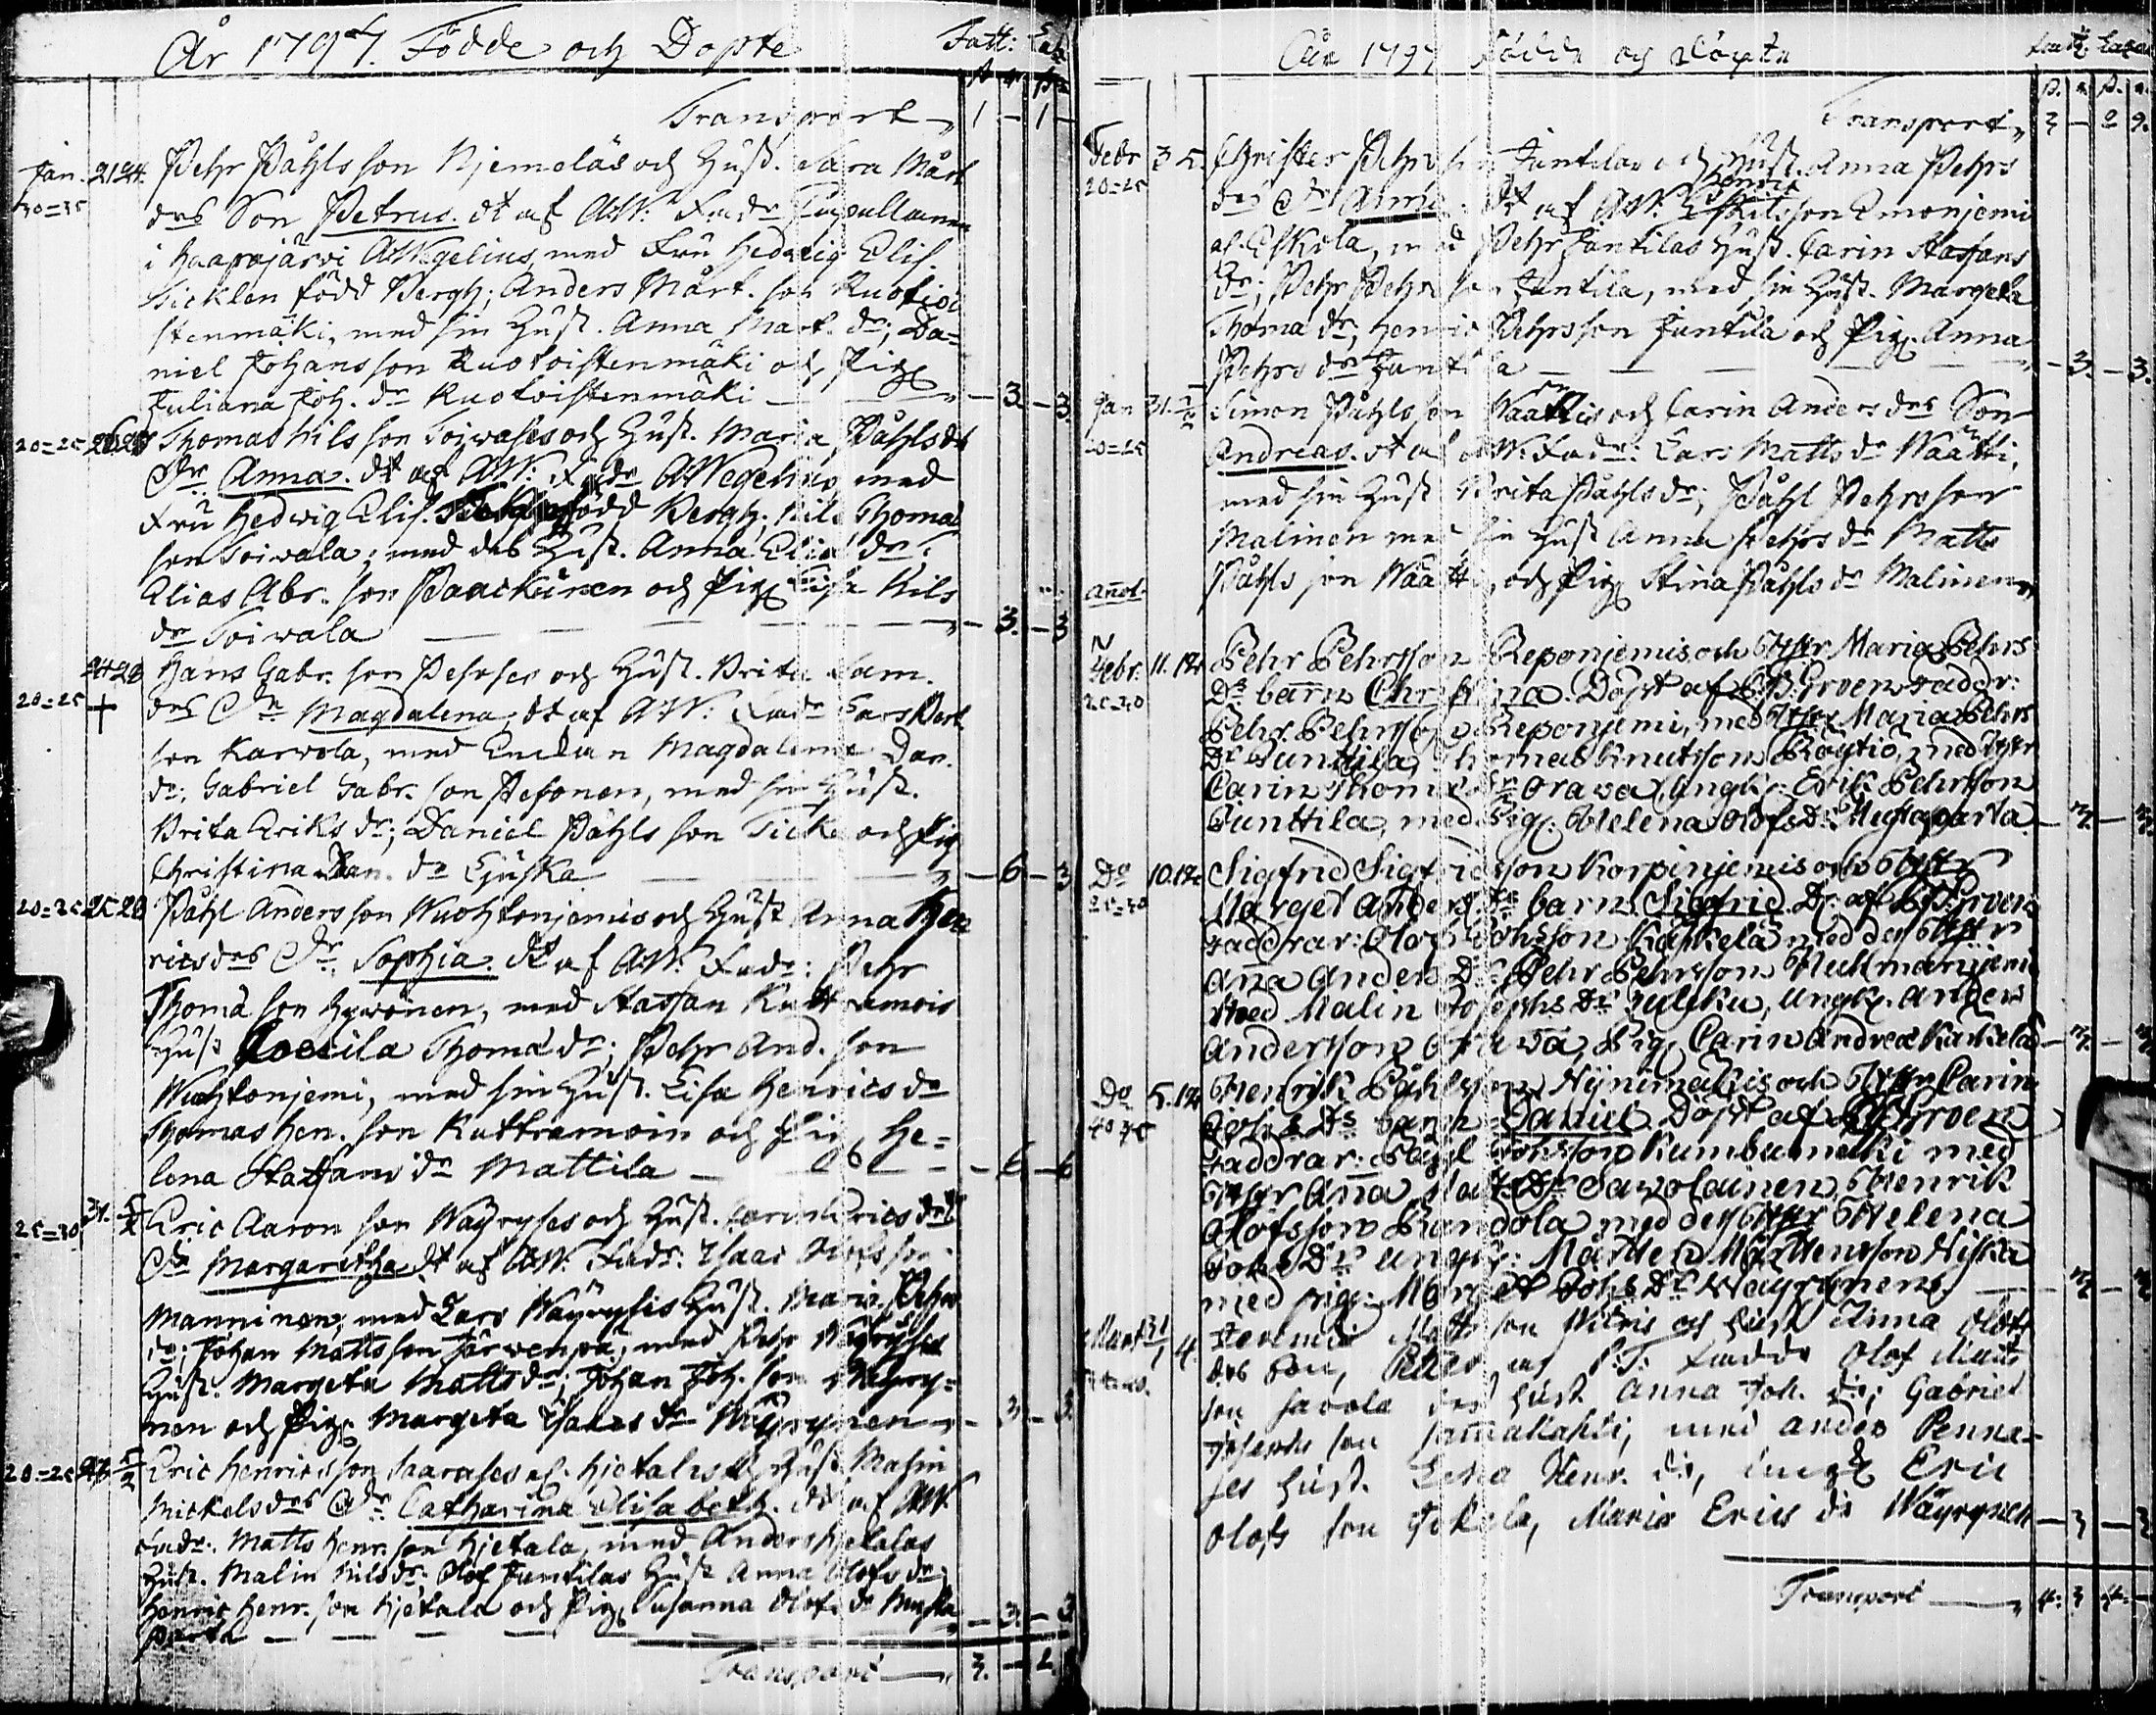 År 1797. Födde och Döpte Fatt: Eccl
Transport 1 - 1 -
Jan. 21 24. Pehr Påhls son Njemeläs och Hust. Sara Mårt
30=35 drs Son Petrus. dt af AW: Fadr Capellanen
i Haapajärvi AWegelius med Fru Hedwig Elis.
Ticklen född Bergh; Anders Mårt. son Ruotois
stenmäki, med sin Hust. Anna Mart. dr; Da=
niel Johans son Ruotoistenmäki och Pig
Juliana Joh. dr Ruotoistenmäki - 3. - 3.
20=25 Thomas Nils son Toiwases och Hust. Maria Påhls drs
Dr Anna. dt af AW: Fadr AWegelius med
Fru Hedwig Elis. född Bergh; Nils Thomæ
son Toiwala; med des Hust. Anna Elia dr;
Elias Abr. son Paackunen och Pig Lisa Nils
dr Toiwala - 3. - 3
24 28 Hans Gabr. son Pesoses och Hust. Brita Sam.
20=25 + drs Dr Magdalena, dt af AW: Fadr Lars Bert
son Karvola, med Enckan Magdalena Dan.
dr; Gabriel Gabr. son Pesonen, med sin Hust.
Brita Eriks dr; Daniel Påhls son Ticka och Pig
Christina Dan. dr Ljuska - 6 - 3
20=25 25 28 Påhl Anders son Wuohtonjemis och Hust Anna Hen
rics drs Dr Sophia. dt af AW. Fadr: Pehr
Thomæ son Hyvönen, med Staffan Kuttramois
Hust Coecila Thomæ dr; Pehr And. son
Wuohtonjemi, med sin Hust. Lisa Henrics dr
Thomas Hen. son Kuttramoin och Pig He=
lena Staffans dr Mattila - 6 - 6
25=30 31. 5/2 Eric Aaron son Wäyryses och Hust. Carin Erics drs
Dr Margaretha dt af AW. Fadr: Isaac Olofs son
Manninen, med Lars Wäyrysis Hust. Maria Pehrs
dr; Johan Matts son Järwenpä, med Pehr Wäyryses
Hust. Margeta Matts dr; Johan Joh. son Wäyry=
nen och Pig Margeta Isaacs dr Wäyrynen - 3. - 3.
20=25 5/2 Eric Henrics son Saarases af. Hjetalas och Hust Malin
Mickels drs Dr Catharina Elisabeth. dt af AW.
Fadr: Matts Henr. son Hjetala, med Anders Hjetalas
Hust. Malin Nils dr; Olof Juntilas Hust Anna Olofs dr;
Henric Henr. son Hjetala och Pig Susanna Olofs dr Musta
parta - 3. - 3
Transport 3. - 2.
År 1797 Födde och Döpte Fatt: Eccles
Transport 3 - 2 9.
Febr 3 5. Christer Pehrs son Juntilas och Hust. Anna Pehrs
20=25 drs Dr Anna. dt af AW. Henric Nilsson Emonjemi
af Eskola, med Pehr Juntilas Hust. Carin Staffans
Dr; Pehr Pehrs son Juntila, med sin Hust. Margeta
Thomæ dr; Henric Pehrsson Juntila och Pig Anna
Pehrs dr Juntila - 3. - 3.
Jan 31. 5/2 Simon Påhls son Waattis och Carin Anders drs Son
20=25 Andreas. dt af AW. Fadr: Lars Matts dr Waatti,
med sin Hust Brita Påhls dr; Påhl Pehrs son
Malinen med sin Hust Anna Pehrs dr Matts
Påhls son Waatti, och Pig Stina Påhls dr Malinen
Febr: 11. 12 Pehr Pehrsson Reponjemis och Hstr Maria Pehrs
25=30 Ds barn Christina. Döpt af Groen Faddr:
Pehr Pehrsson Reponjemi, med Hstr Maria Pehrs
Dr Junttila, Thomas Knutsson Röytiö, med Hstr
Carin Thomæ Dr Orava, Ungk: Erik Pehrsson
Junttila, med Pig: Helena Olofs Dr Mustaparta - 3. - 3.
Do 10. 12 Sigfrid Sigfridsson Korpinjemis och Hstr
25=30 Marget Anders Ds barn Sigfrid. Dr af Groen
Faddrar: Olof Johsson Kaskela med des Hstr
Ana Anders Dr Pehr Pehrsson Huttmannjemi
Med Malin Josephs Dr Juluku, Ungk. Anders
Andersson Orava, Pig Carin Andræ Kaskela - 3. - 3
Do 5. 12 Henrik Påhlsson Nynimäkis och Hstr Carin
40 45 Johs Ds barn Daniel Döpt af Groen
Faddrar: Påhl Johsson Kumbumäki med
Hstr Ana Matts Dr Savolainen, Henrik
Olofsson Kandola med des Hstr Helena
Johs Dr Ungk: Mårtten Mårttensson Niska
med pig: Marget Johs Dr Wäyrynen - 3 - 3
Mart 31/1 4.
son Savola des Hust Anna Joh. dr; Gabriel
Josephs son Jämäkahli, med Anders Penna=
ses Hust. Lena Henr. dr, Ungk Eric
Olofs son Jokela, Maria Erics dr Wäyrynen - 3 - 3
Transport 4. 3 4. -